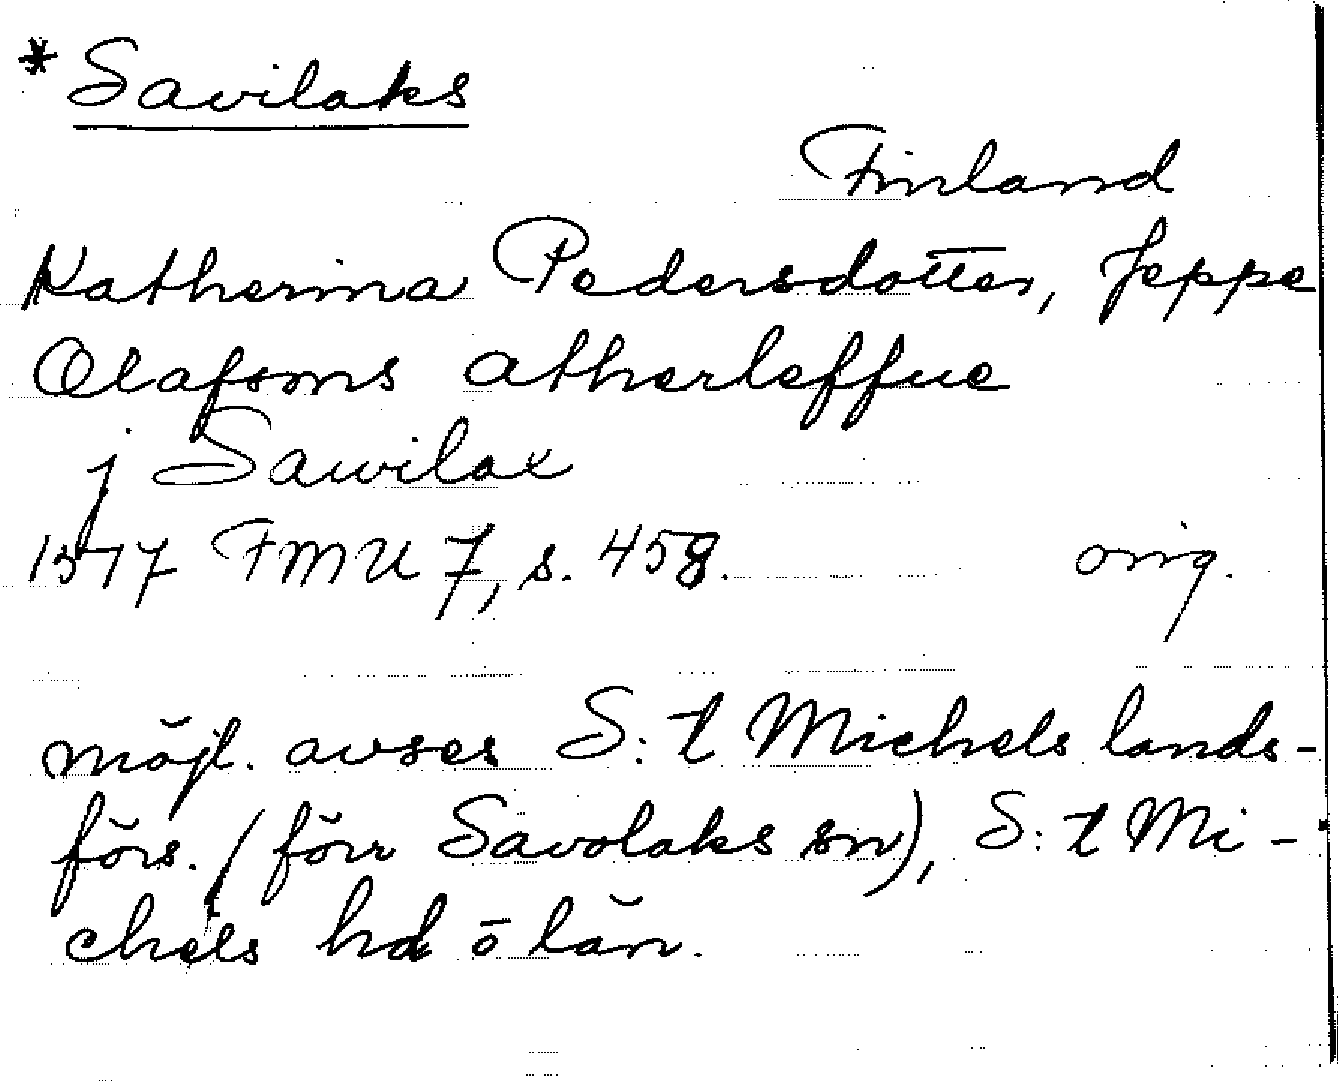 * Savilaks
Finland
Katherina Pedersdotter, Jeppe
Olafsons atherleffue
j Sawilax
1517 FMU 7, s. 458. orig.
möjl. avses S:t Michels lands-
förs. (förr Savolaks sn), S:t Mi-
chels hd o län.